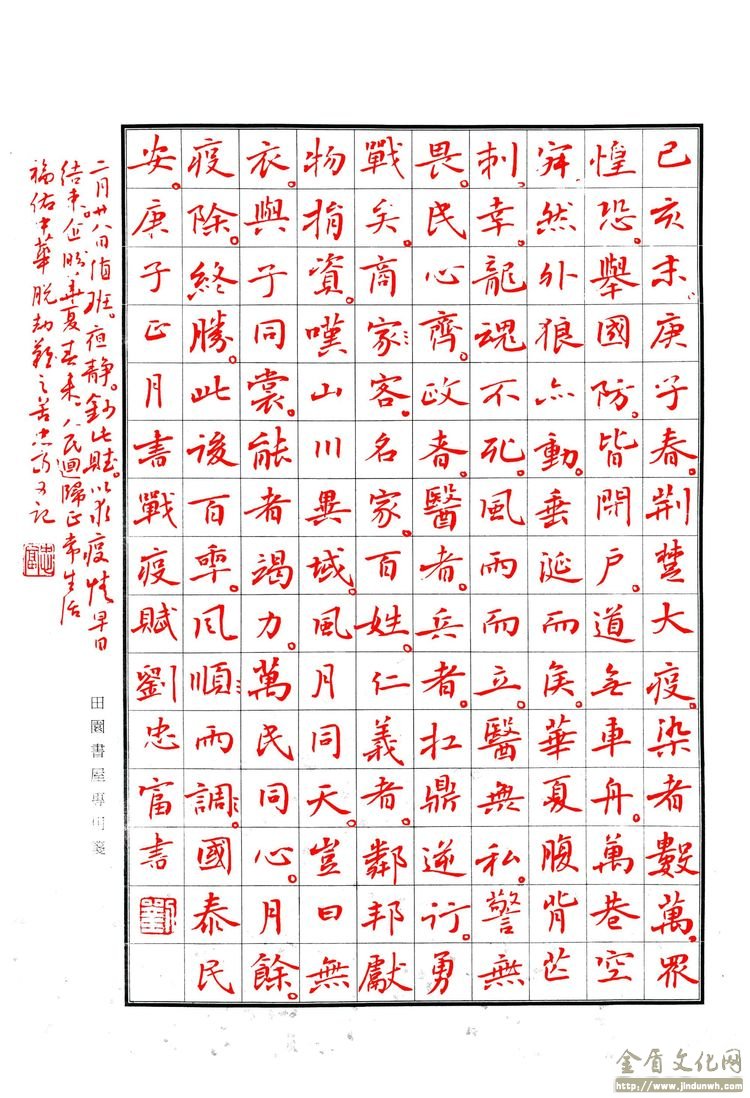 己亥末、庚子春。荊楚大疫。染者數萬。眾
惶恐。舉國防。皆閉户。道無車舟。萬巷空
寂然外狼亦動。垂涎而侯。華夏腹背芒
刺。幸龍魂不死。風雨而立。醫無私。警無
畏。民心齊。政春。醫者。兵者。扛鼎逆行。勇
戰矣。商家客。名家。百姓。仁義者。鄰邦獻
物捐資。嘆山川異域。風月同天。豈曰無
衣。與子同裳。能者竭力。萬民同心。月餘。
疫除。終勝。此後百年。风順雨調。國泰民
安。庚子正月書戰疫賦劉忠富書
二月廿八日值班。夜静。钞此賦。以求疫情早日
结束。企盼華夏春来。人民迴歸正常生活
福佑中華脱劫難之苦忠富又記
田園書屋專用箋
金盾文化网
http://www.jindunwh.com